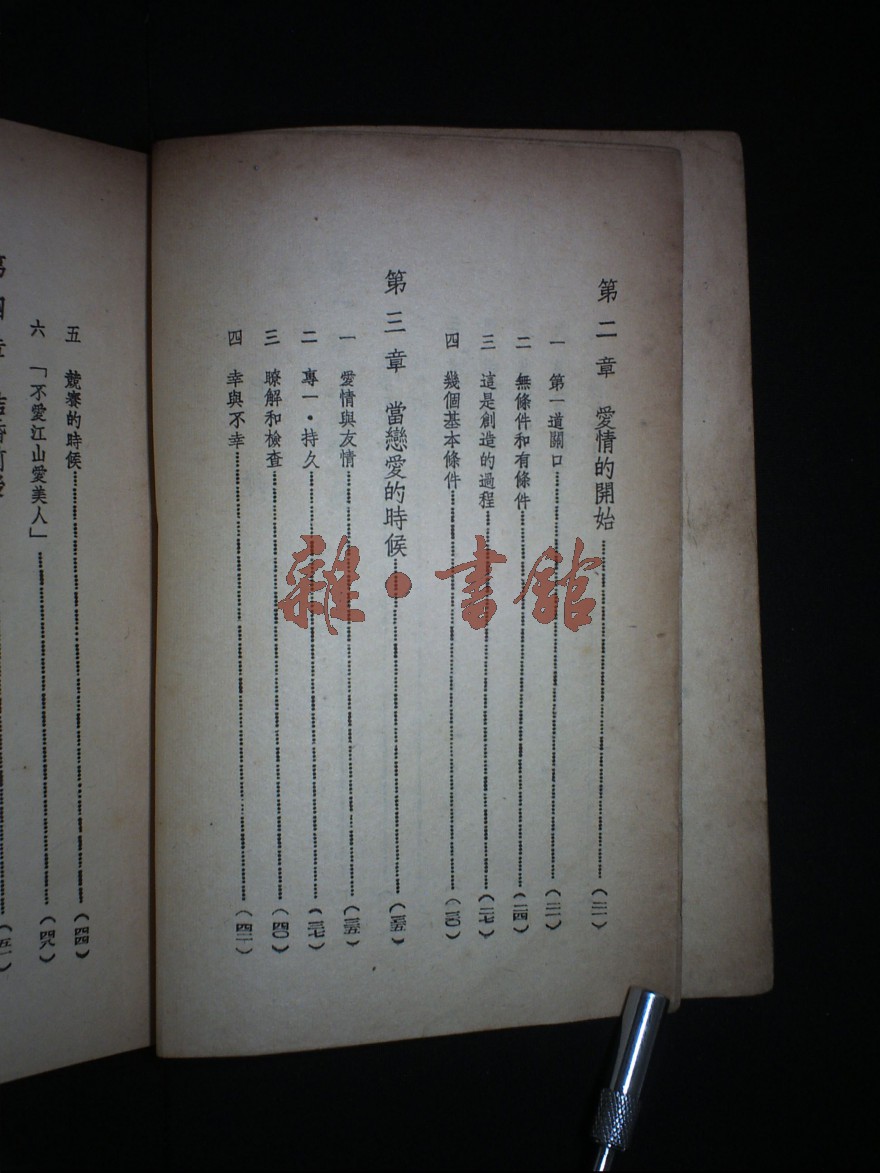 第二章 愛情的開始……(二一)
一 第一道關口……(二一)
二 無條件和有條件……(二四)
三 這是創造的過程……(二七)
四 幾個基本條件……(三〇)
第三章 當戀愛的時候……(三五)
一 愛情與友情……(三五)
二 專一・持久……(三七)
三 暸解和檢查……(四〇)
四 幸與不幸……(四二)
五 競賽的時候……(四四)
六 「不愛江山愛美人」……(四八)
第四章
雜・書館